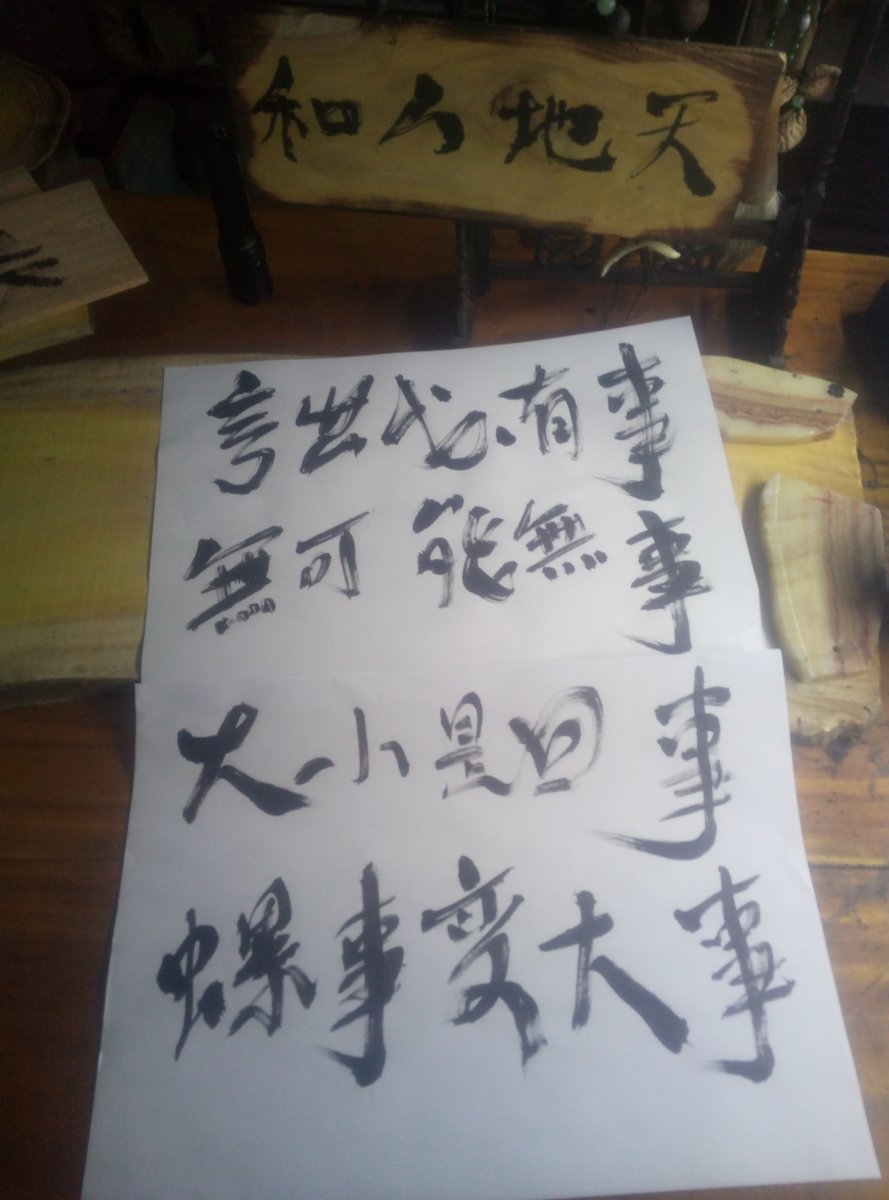 天地人和
出有事
無可能無事
大小是回事
螺事变大事